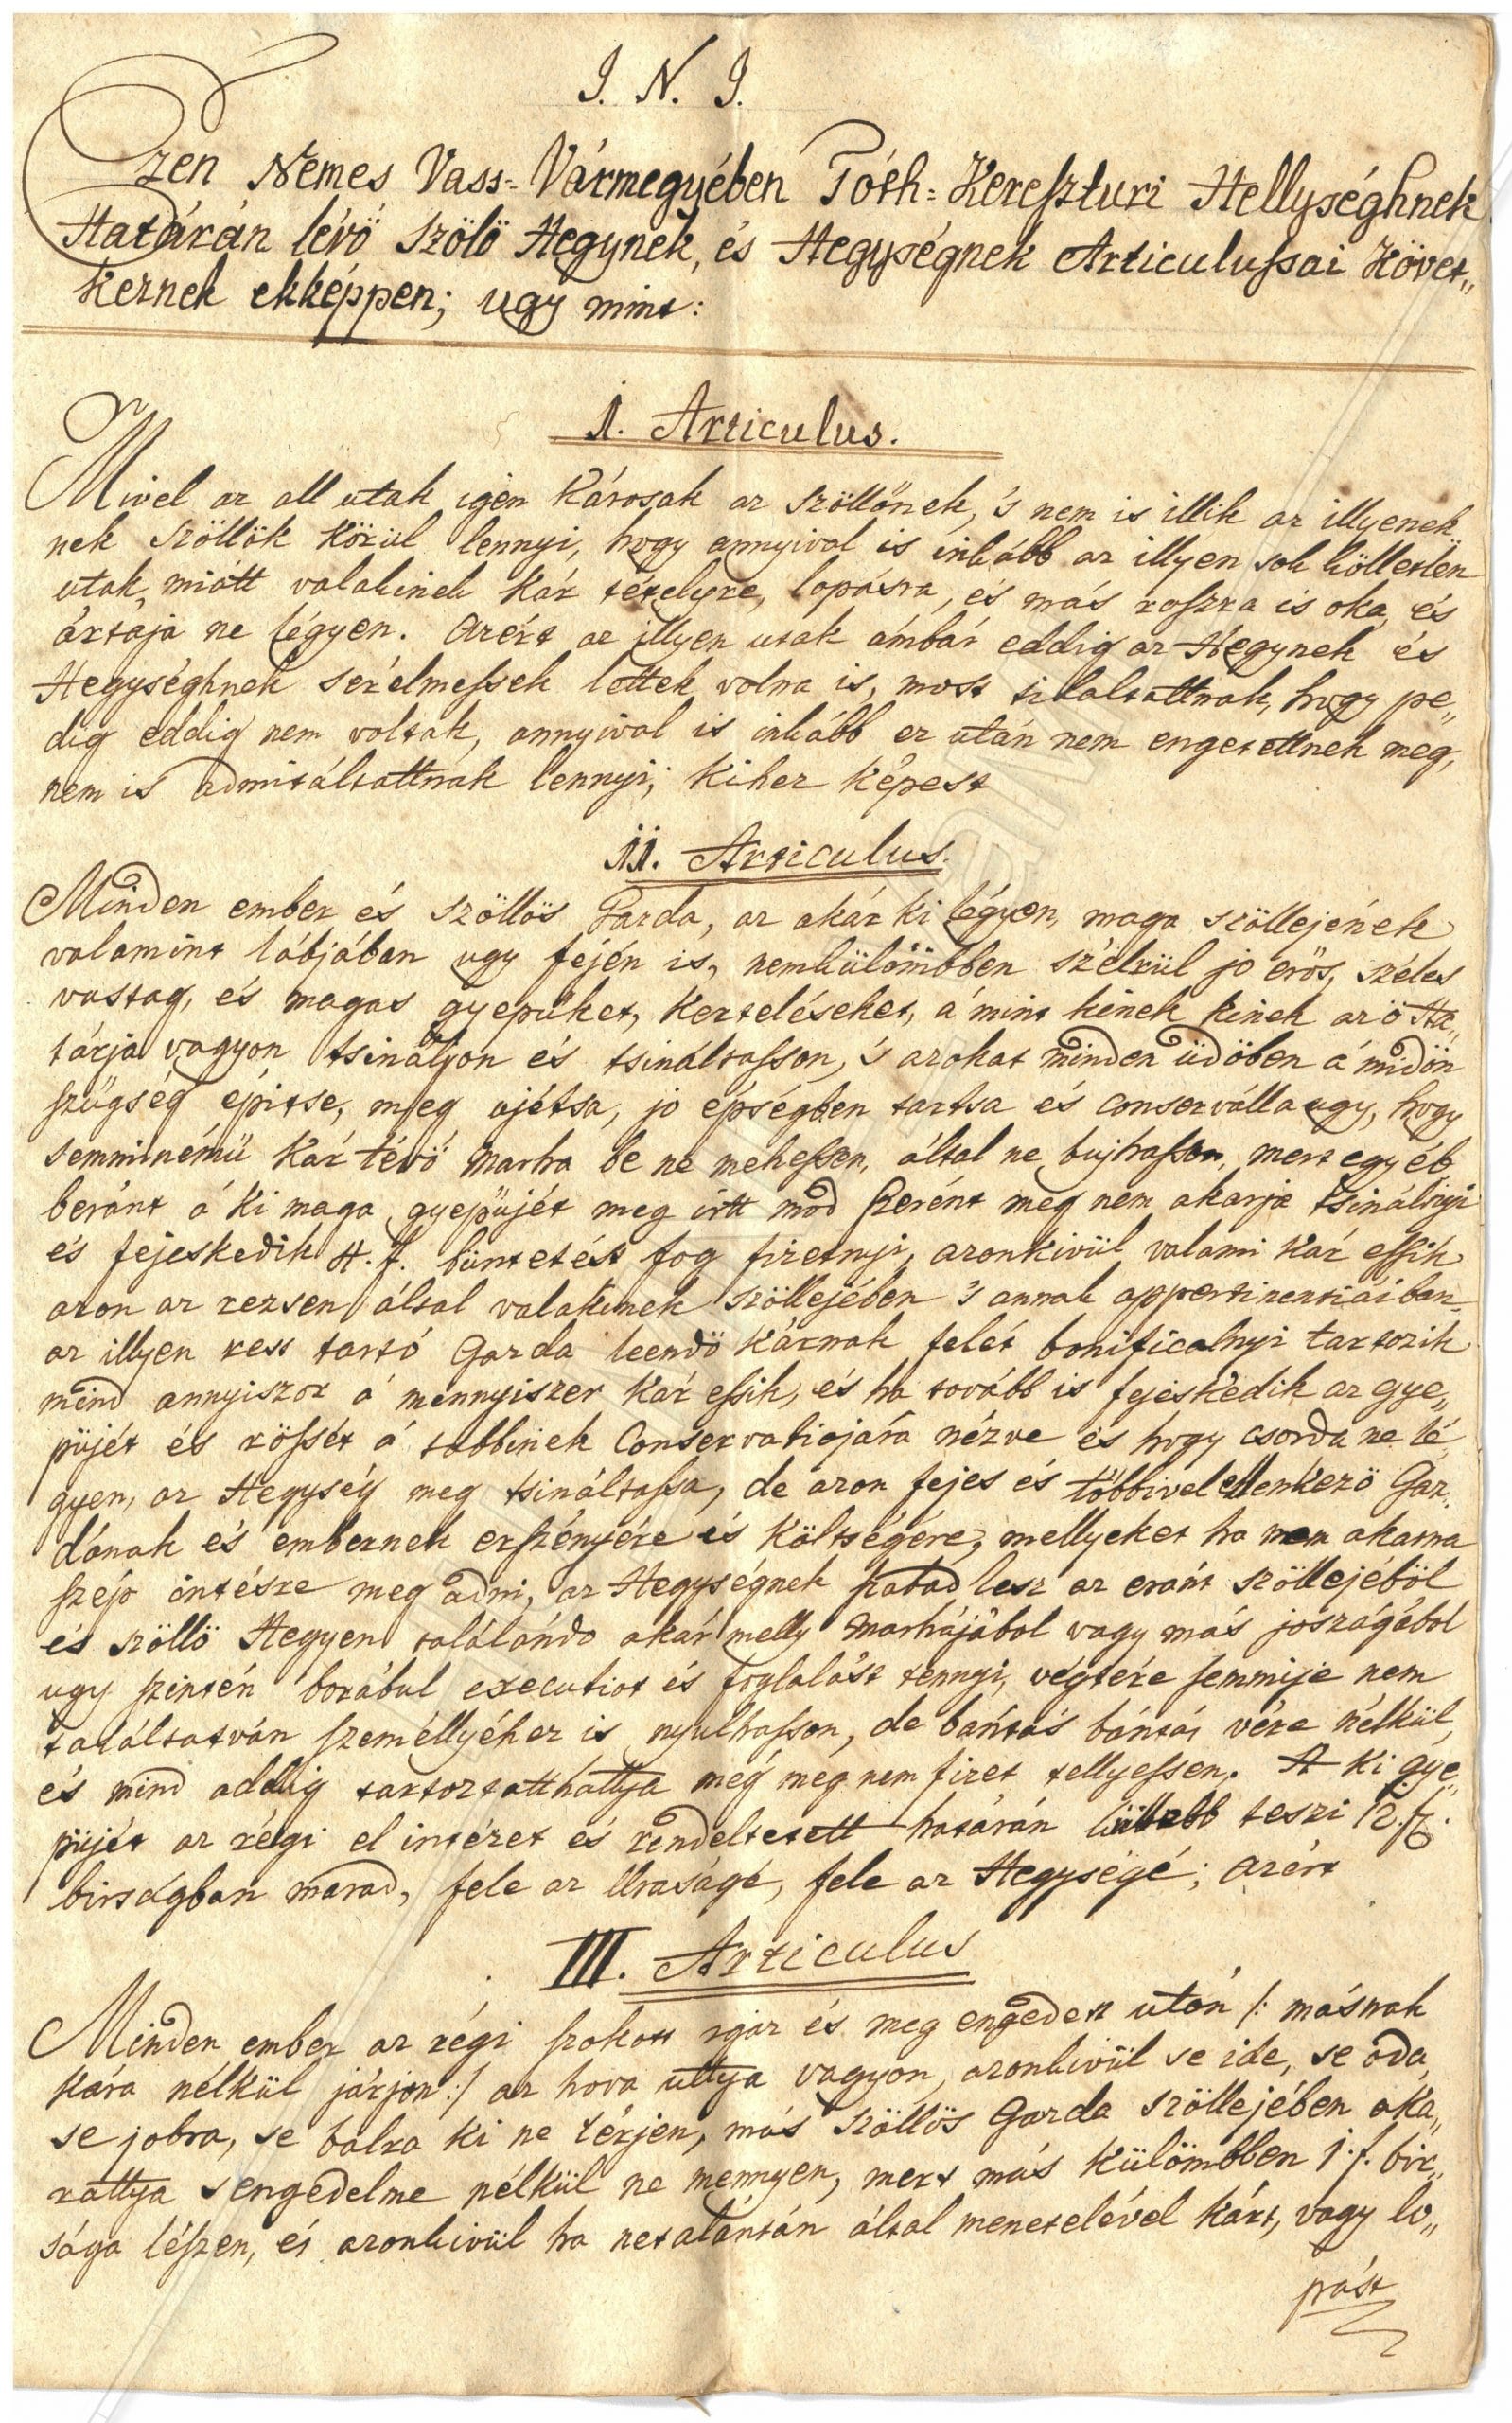 I. N. I.
Ezen Nemes Vass-Vármegyében Tóth-Kereszturi Hellységhnek
Határán lévő szőlő Hegynek, és Hegységnek Articulussai követ„
keznek ekképpen; ugy mint:
1. Articulus.
Mivel az all utak igen károsak az szöllőnek, 's nem is illik az illyenek„
nek szöllök közül lennyi, hogy annyival is inkább az illyen sok kölletlen
utak, miátt valakinek kár tételyre, lopásra, és más roszra is oka, és
ártaja ne légyen. Azért az illyen utak ámbár eddig az Hegynek és
Hegységhnek serélmessek lettek volna is, most tilaltattnak, hogy pe„
dig eddig nem voltak, annyival is inkább ez után nem engetettnek meg,
nem is admitáltattnak lennyi; kihez képest
II. Articulus.
Minden ember és szöllös Gazda, az akár ki légyen, maga szöllejének
valamint lábjában ugy fején is, nemkülömbben szélrül jo erös, széles
vastag, és magas gyepüket, kerteléseket, a' mint kinek kinek az ö Ha„
tárja vagyon tsinállyon és tsináltasson, 's azokat minden üdöben a' midön
szügség épitse, meg ujétsa, jo épségben tartsa és conserválla ugy, hogy
semminémü kár tévö marha be ne mehessen, által ne bujhasson, mert egyéb
beránt a' ki maga gyepüjét meg irtt mod szerént meg nem akarja tsinálnyi
és fejeskedik 4. f. büntetést fog fizetnyi, azonkivül valami kár essik
azon az rezsen által valakinek szöllejében 's annak appertinentiáiban
az illyen ress tartó Gazda leendö kárnak felét bonificalnyi tartozik
mind annyiszor a' mennyiszer kár essik, és ha tovább is fejeskedik az gye„
püjét és rössét a' többinek Conservatiojára nézve és hogy csorda ne lé„
gyen, az Hegység meg tsináltassa, de azon fejes és többivel ellenkezö Gaz„
dának és embernek erszényére és költségére, mellyeket ha nem akarna
szép intésre meg adni, az Hegységnek szabad lesz az eránt szöllejéböl
és szöllö Hegyen találándo akár melly marhájábol vagy más joszágábol
ugy szintén borábul executiot és foglalást tennyi, végtére semmije nem
találtatván személlyéhez is nyulhasson, de bántás bántás vére nélkül,
és mind addig tartoztatthattja még meg nem fizet tellyessen. A ki gye„
püjét az régi el intézet és rendeltetett határán küllebb teszi 12. f.
birságban marad, fele az Uraságé, fele az Hegységé; azért
III. Articulus
Minden ember az régi szokott igaz és meg engedett utón /: másnak
kára nélkül járjon :/ az hova uttya vagyon, azonkivül se ide, se oda,
se jobra, se balra ki ne térjen, más szöllös Gazda szöllejében aka„
rattya 's engedelme nélkül ne mennyen, mert más külömbben 1. f. bir„
sága lészen, és azonkivül ha netalántán által menetelével kárt, vagy lo„
pást